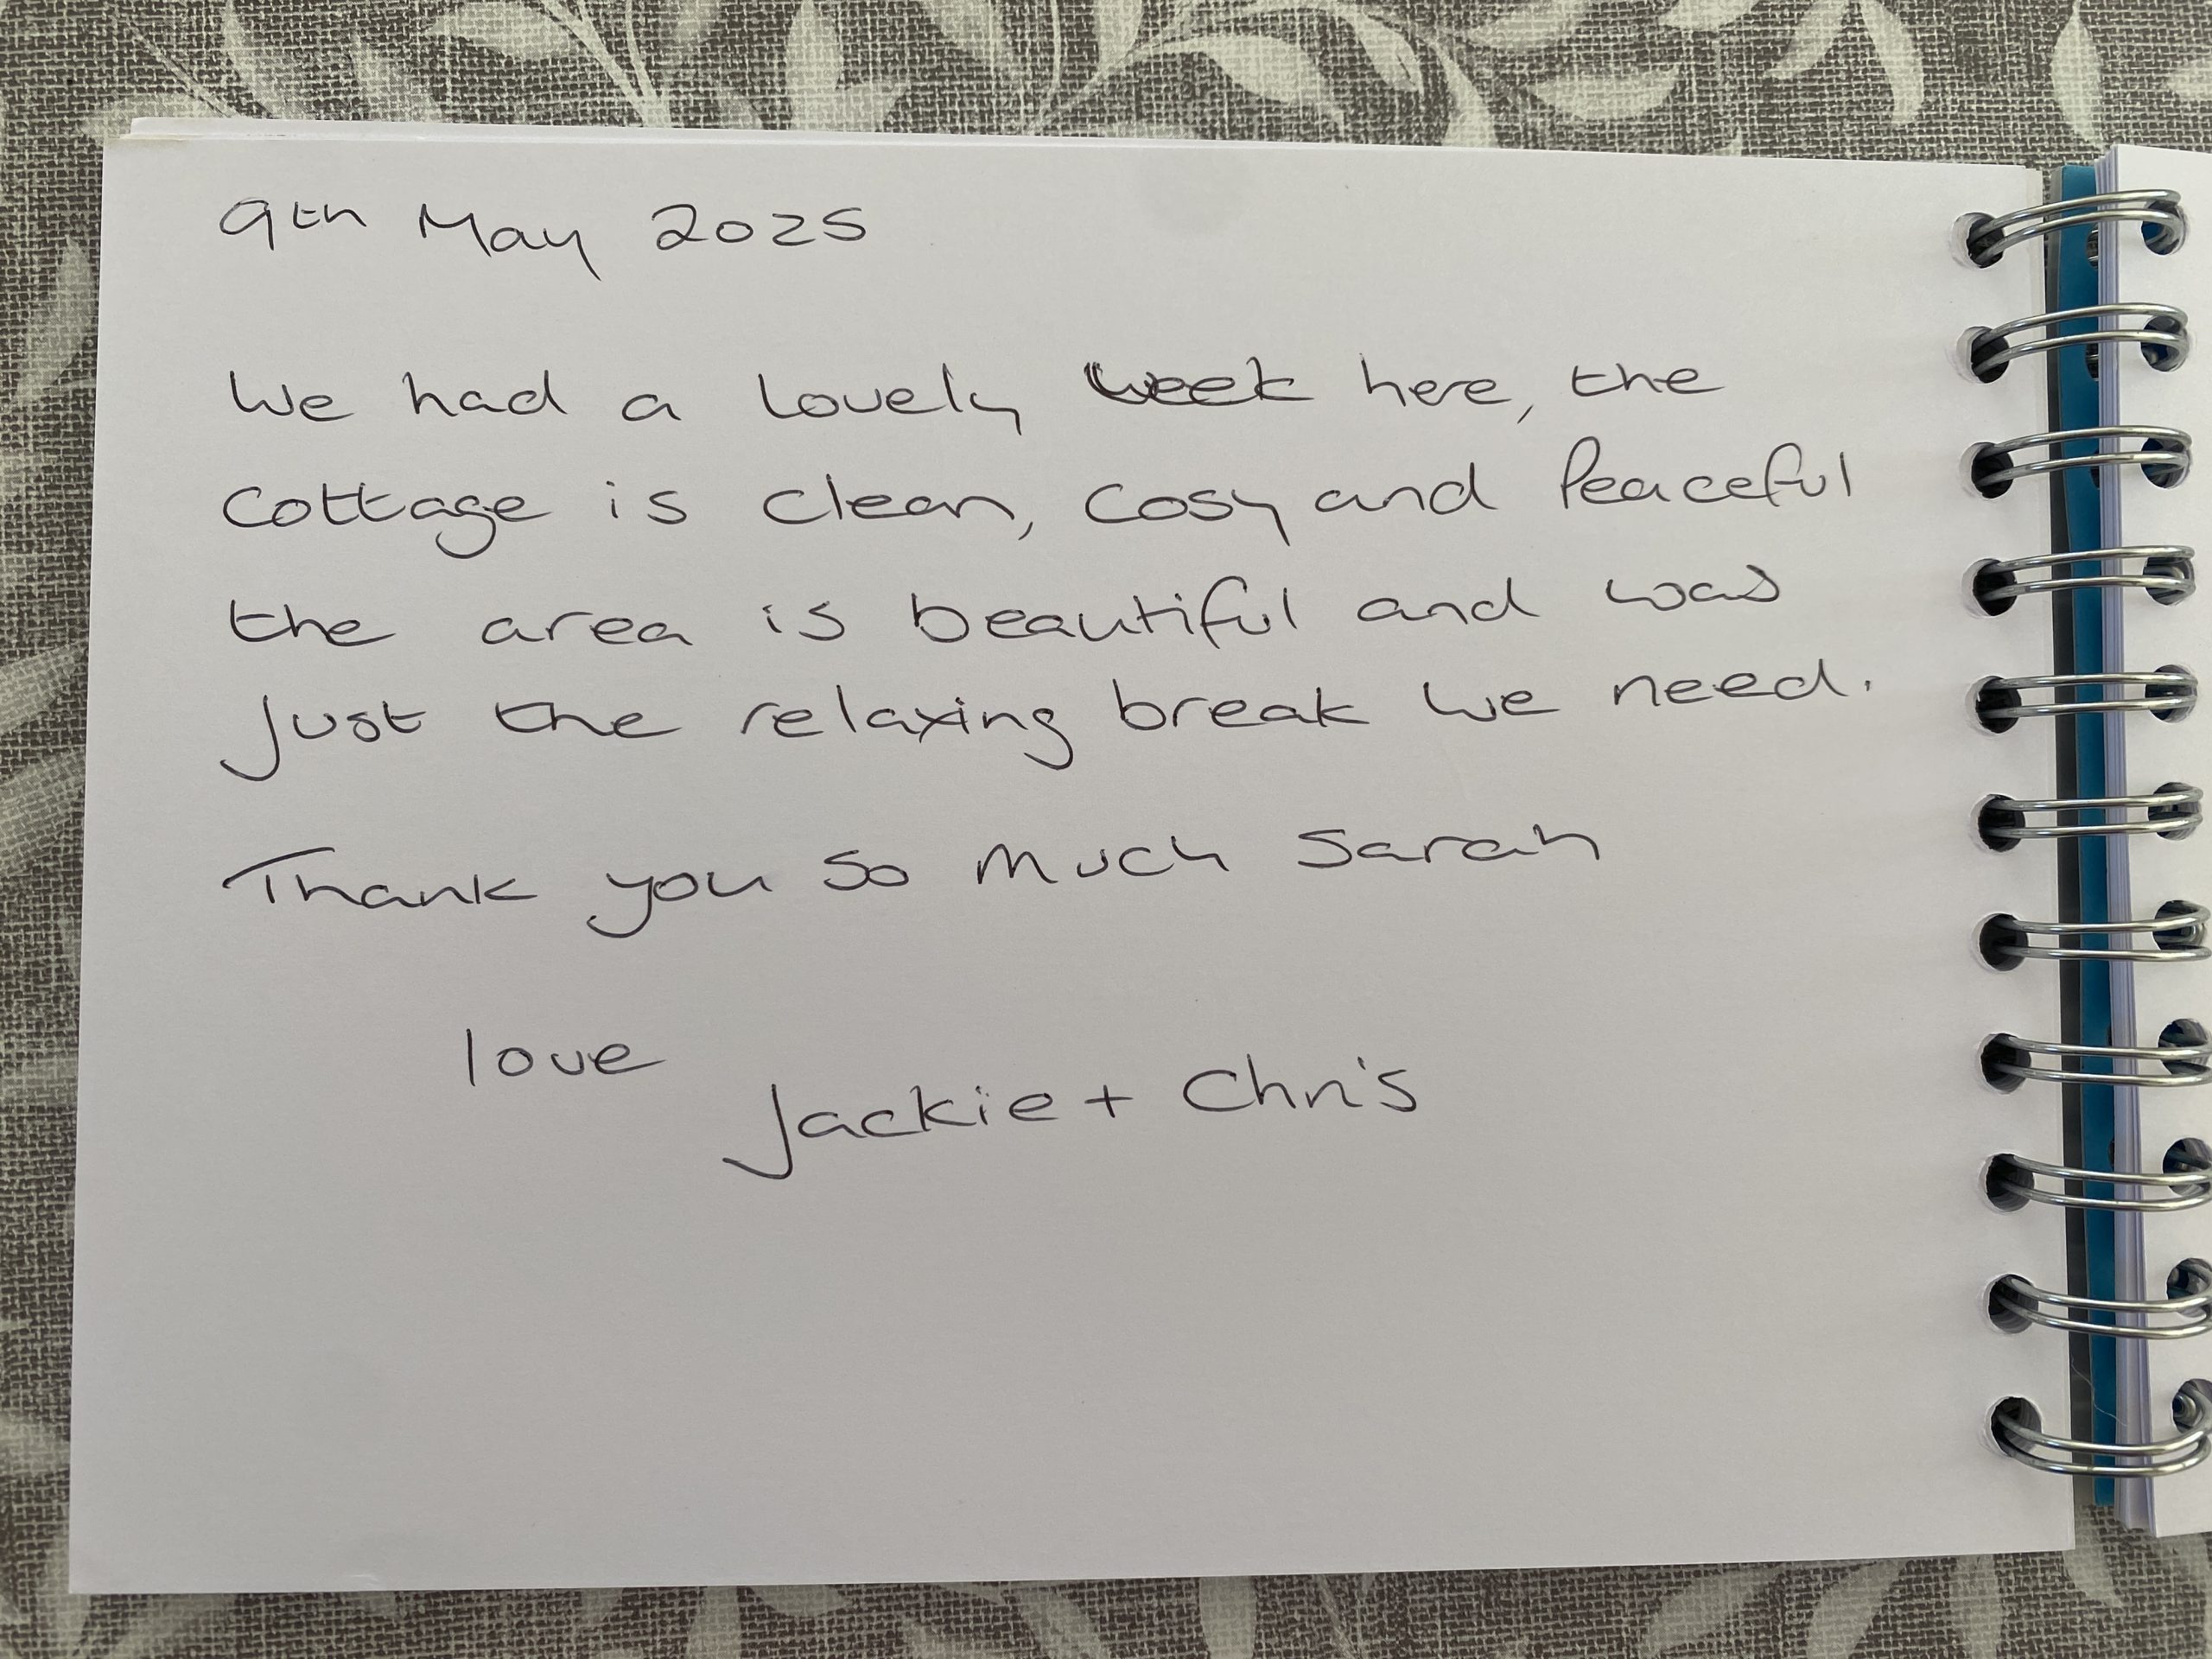 9th May 2025
We had a lovely week here, the
cottage is clean, cosy and Peaceful
the area is beautiful and was
just the relaxing break we need.
Thank you so much Sarah
love
Jackie + Chris